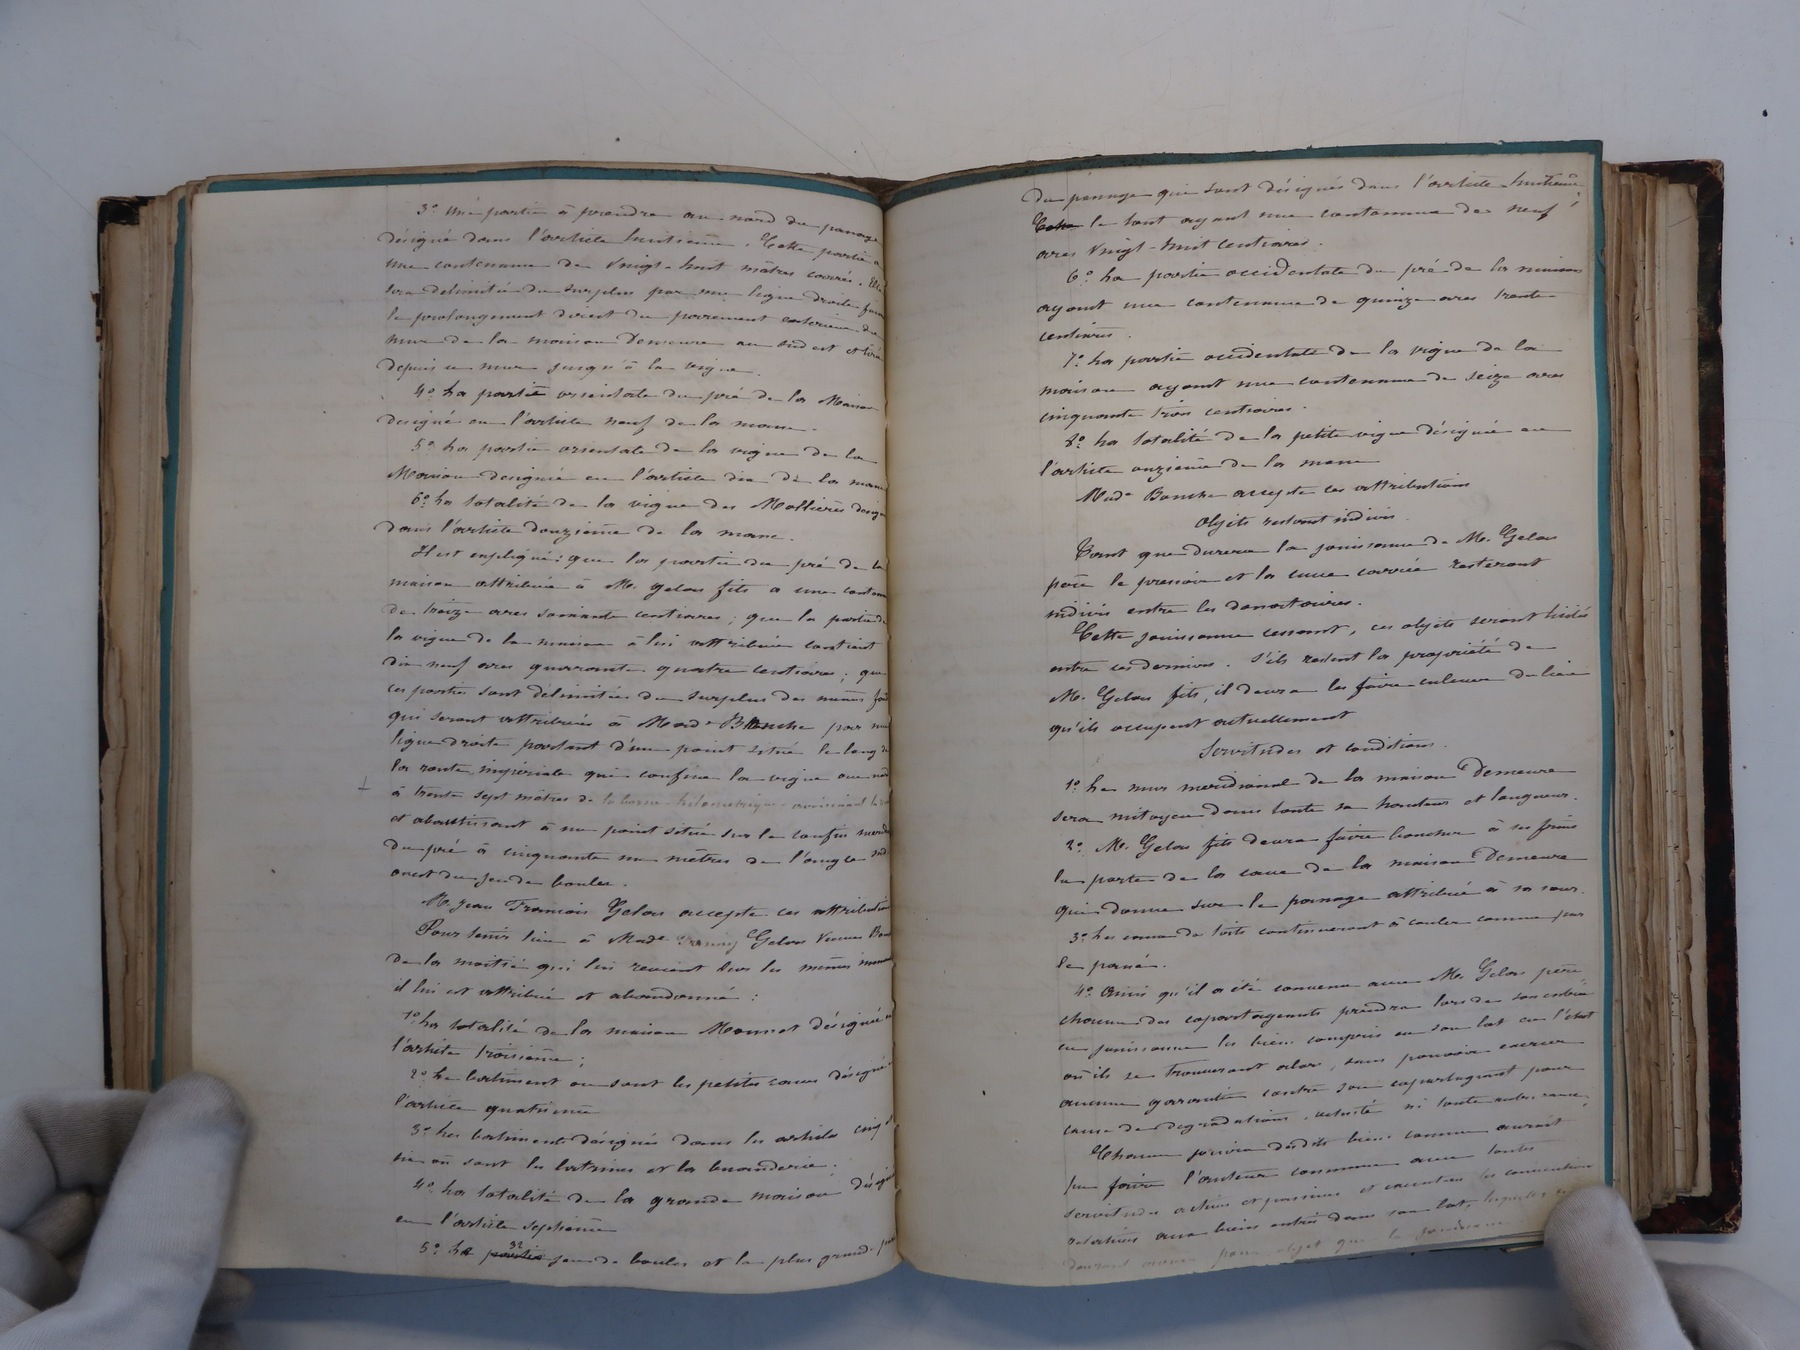 3° Une partie à prendre au nord du passage
désigné dans l'article huitième. Cette partie a
une contenance de vingt-huit mètres carrés. Elle
sera délimitée du surplus par une ligne droite
le prolongement direct du parement extérieur du
mur de la maison Demeure au sud est et tirée
depuis ce mur jusqu'à la vigne.
4° La partie orientale du pré de la Maison
désigné en l'article neuf de la masse.
5° La partie orientale de la vigne de la
Maison désignée en l'article dix de la masse
6° La totalité de la vigne des Mollières
dans l'article douzième de la masse.
Il est expliqué : que la partie du pré de la
maison attribuée à M. Gelas fils a une
de treize ares soixante centiares ; que la partie de
la vigne de la maison à lui attribuée contient
dix neuf ares quarante quatre centiares ; que
ces parties sont délimitées du surplus des mêmes
qui seront attribués à Made Blanche par une
ligne droite partant d'un point situé le long de
la route impériale qui confine la vigne au nord
à trente sept mètres de la borne kilométrique avoisinant la
et aboutissant à un point situé sur le confin
du pré à cinquante un mètres de l'angle sud-
ouest du jeu de boules.
M. Jean François Gelas accepte ces attributions
Pour tenir lieu à Made Gelas Veuve
de la moitié qui lui revient dans les mêmes
il lui est attribué et abandonné :
1° La totalité de la maison Monnet désignée
l'article troisième ;
2° Le bâtiment où sont les petites caves désigné
l'article quatrième
3° Les bâtiments désignés dans les articles cinq et
six où sont les latrines et la buanderie.
4° La totalité de la grande maison
en l'article septième
5° Le jeu de boules et la plus grande
du passage qui sont désignés dans l'article huitième,
le tout ayant une contenance de neuf
ares vingt-huit centiares.
6° La partie occidentale du pré de la maison
ayant une contenance de quinze ares trente
centiares.
7° La partie occidentale de la vigne de la
maison ayant une contenance de seize ares
cinquante trois centiares.
8° La totalité de la petite vigne désignée en
l'article onzième de la masse
Made accepte ces attributions
Objets restant indivis.
Tant que durera la jouissance de M. Gelas
père le pressoir et la cuve carrée resteront
indivis entre les donataires.
Cette jouissance cessant, ces objets seront licités
entre ces derniers. S'ils restent la propriété de
M. Gelas fils, il devra les faire enlever du lieu
qu'ils occupent actuellement
Servitudes et conditions.
1° Le mur méridional de la maison Demeure
sera mitoyen dans toute sa hauteur et longueur.
2° M. Gelas fils devra faire boucher à ses frais
la porte de la cave de la maison Demeure
qui donne sur le passage attribué à sa sœur.
3° Les eaux de toits continueront à couler comme par
le passé.
4° Ainsi qu'il a été convenu avec M. Gelas père
chacun des copartageants prendra lors de son entrée
en jouissance les biens compris en son lot en l'état
où ils se trouveront alors, sans pouvoir exercer
aucune garantie contre son copartageant pour
cause de dégradations, vétusté ni toute autre cause.
Chacun jouira desdits biens comme aurait
pu faire l'auteur commun avec toutes
servitudes actives et passives et les conventions
relatives aux biens entrés dans son lot,
devront avoir pour objet que la